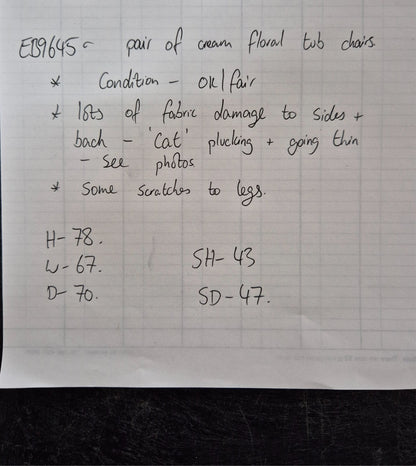 EB9645 - pair of cream floral tub chairs.
* Condition - OK/fair
* lots of fabric damage to sides +
back - 'Cat' plucking + going thin
- See photos
* Some scratches to legs.
H- 78.
W- 67.
D- 70.
SH- 43
SD- 47.